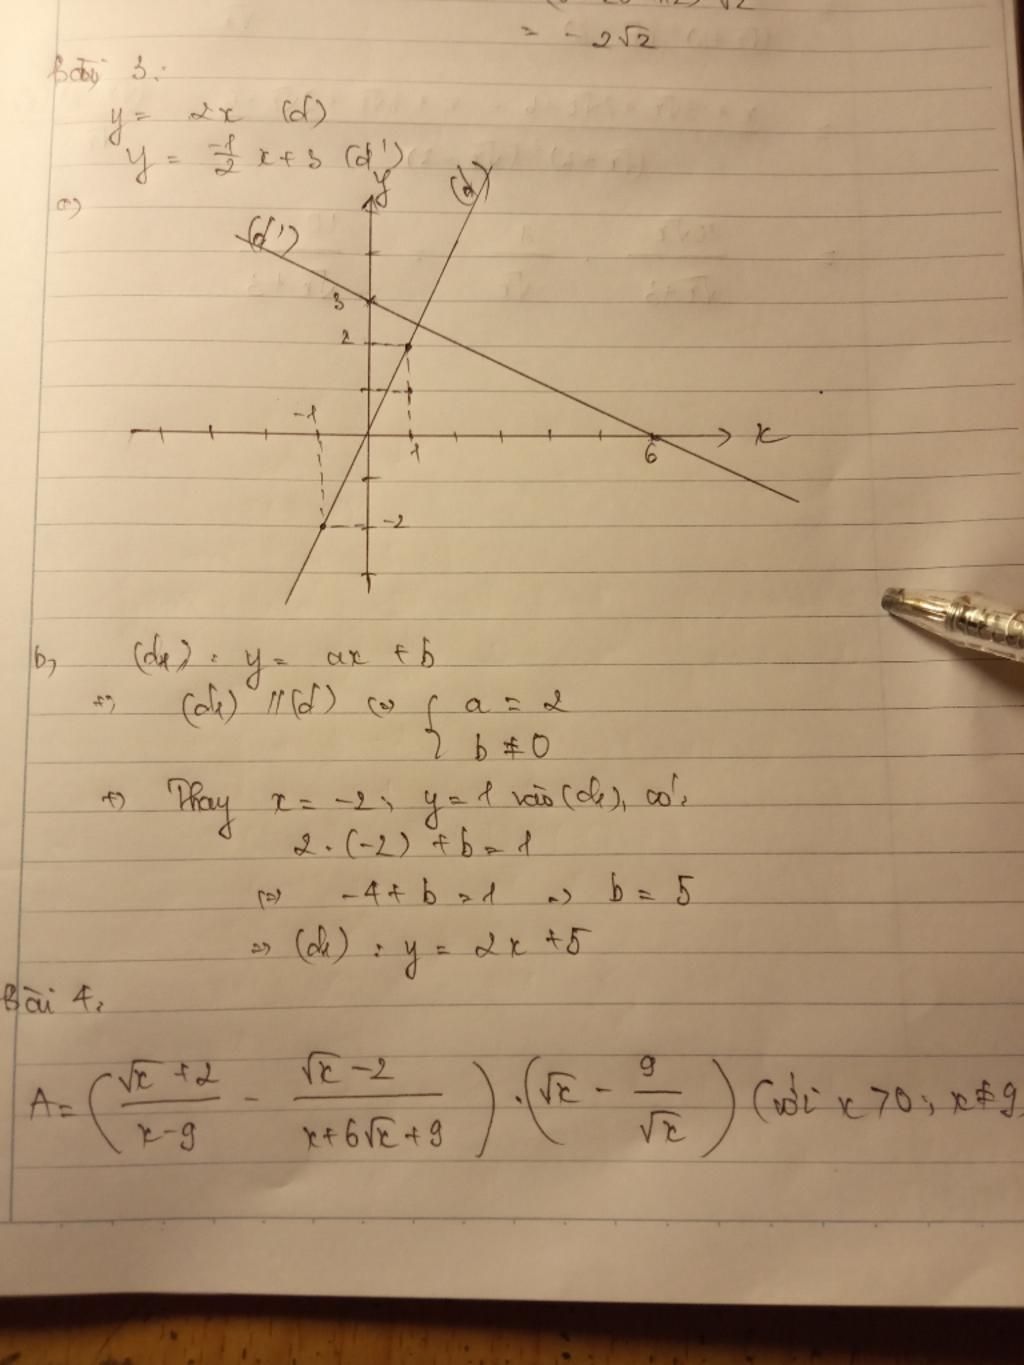 = -2√2
Bài 3:
y = 2x (d)
y = -1/2 x + 3 (d')
a)
y
(d)
(d')
3
2
-1
x
1
6
-2
b, (d₁) : y = ax + b
+) (d₁) // (d) <=> { a = 2
{ b ≠ 0
+) Thay x = -2; y = 1 vào (d₁), có:
2 . (-2) + b = 1
<=> -4 + b = 1 => b = 5
=> (d₁) : y = 2x + 5
Bài 4:
A = ( (√x + 2)/(x - 9) - (√x - 2)/(x + 6√x + 9) ) . ( √x - 9/√x ) (với x > 0; x ≠ 9